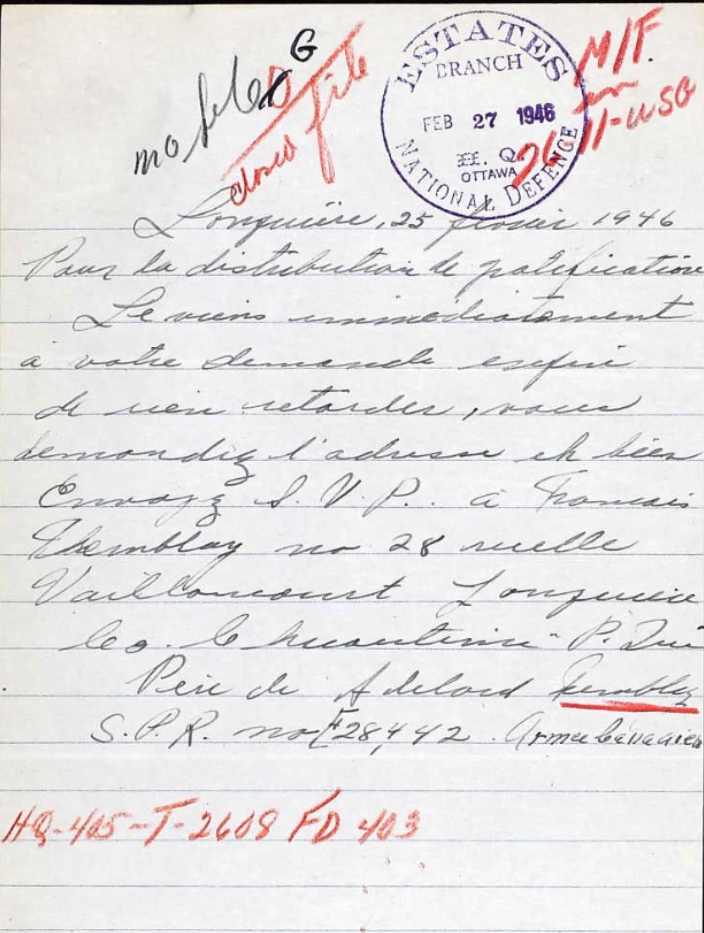 G
closed file
ESTATES
BRANCH
FEB 27 1946
H. Q.
OTTAWA
NATIONAL DEFENCE
M/F
Jonquière, 25 fevrier 1946
Pour la distribution de gratification
Je viens immediatement
à votre demande enfin
de rien retarder, vous
demandez l'adresse eh bien
Envoyz S.V.P. à Francois
Themblay no 28 ruelle
Vaillancourt Jonquiere
Co. Chicoutimi P. Que
Père de Adelard Tremblay
S.P.R. no E28,442 Armee Canadien
HQ-405-T-2608 FD 403